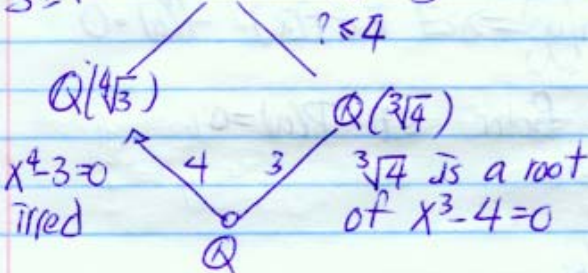 ? ≤ 4
Q(∜3)
Q(∛4)
x⁴-3=0
irred
4
3
∛4 is a root
of x³-4=0
Q